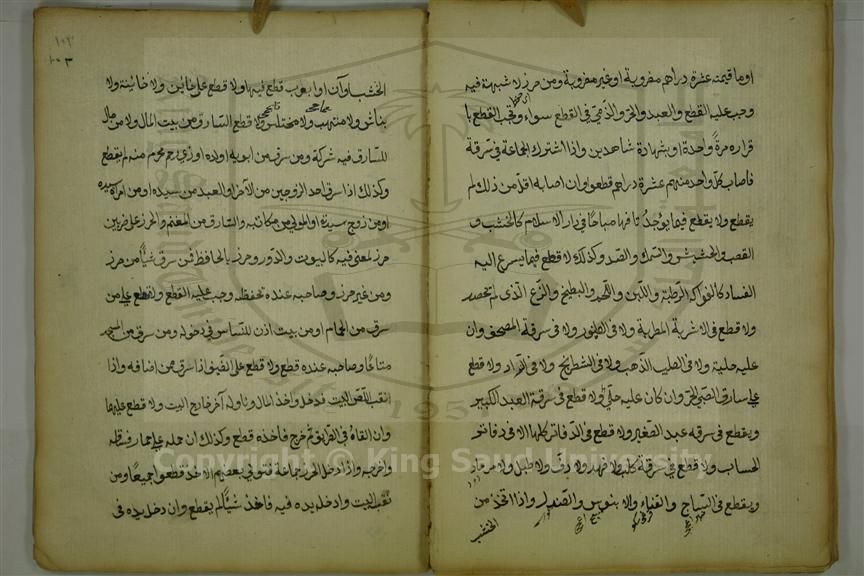 او ما قيمته عشرة دراهم مضروبة او غير مضروبة ومن حرز لا شبهة فيه
وجب عليه القطع والعبد والحر والذمي في القطع سواء ويجب القطع با
قراره مرة واحدة او بشهادة شاهدين واذا اشترك الجماعة في سرقة
فاصاب كل واحد منهم عشرة دراهم قطعوا وان اصابه اقل من ذلك لم
يقطع ولا يقطع فيما يوجد تافها مباحا في دار الاسلام كالخشب و
القصب والحشيش والسمك والصيد وكذلك لا قطع فيما يسرع اليه
الفساد كالفواكه الرطبة واللبن واللحم والبطيخ والزرع الذى لم يحصد
ولا قطع في الاشربة المطربة ولا في الطنبور ولا في سرقة المصحف وان
عليه حلية ولا في الصليب الذهب ولا في الشطرنج ولا في النرد ولا قطع
على سارق الصبي الحر وان كان عليه حلي ولا قطع في سرقة العبد الكبير
ويقطع في سرقة عبد الصغير ولا قطع في الدفاتر كلها الا في دفاتر
الحساب ولا قطع في سرقة كلب ولا فهد ولا دف ولا طبل ولا مزمار
ويقطع في الساج والقناء ولا بنوس والصندل واذا اتخذ من
الخشب
١٠٣
الخشب اوان او ابواب قطع فيها ولا قطع على خائن ولا خائنة ولا
نباش ولا منتهب ولا مختلس ولا قطع السارق من بيت المال ولا من مال
للسارق فيه شركة ومن سرق من ابويه او ولده او ذي رحم محرم منه لم يقطع
وكذلك اذا سرق احد الزوجين من الآخر او العبد من سيده او من امراة سيده
او من زوج سيدته او المولى من مكاتبه والسارق من المغنم والحرز على ضربين
حرز لمعنى فيه كالبيوت والدور وحرز بالحافظ فمن سرق شيأ من حرز
ومن غير حرز وصاحبه عنده تحفظه وجب عليه القطع ولا قطع على من
سرق من الحمام او من بيت اذن للناس في دخوله ومن سرق من المسجد
متاعا وصاحبه عنده قطع ولا قطع على الضيف اذا سرق ممن اضافه واذا
انقب اللص البيت فدخل واخذ المال وناوله آخر خارج البيت ولا قطع عليهما
وان القاه في الطريق ثم خرج فاخذه قطع وكذلك ان حمله على حمار فساقه
واخرجه واذا دخل الحرز جماعة فتولى بعضهم الاخذ قطعوا جميعا ومن
نقب البيت وادخل يده فيه فاخذ شيأ لم يقطع وان دخل يده في
Copyright © King Saud University
195